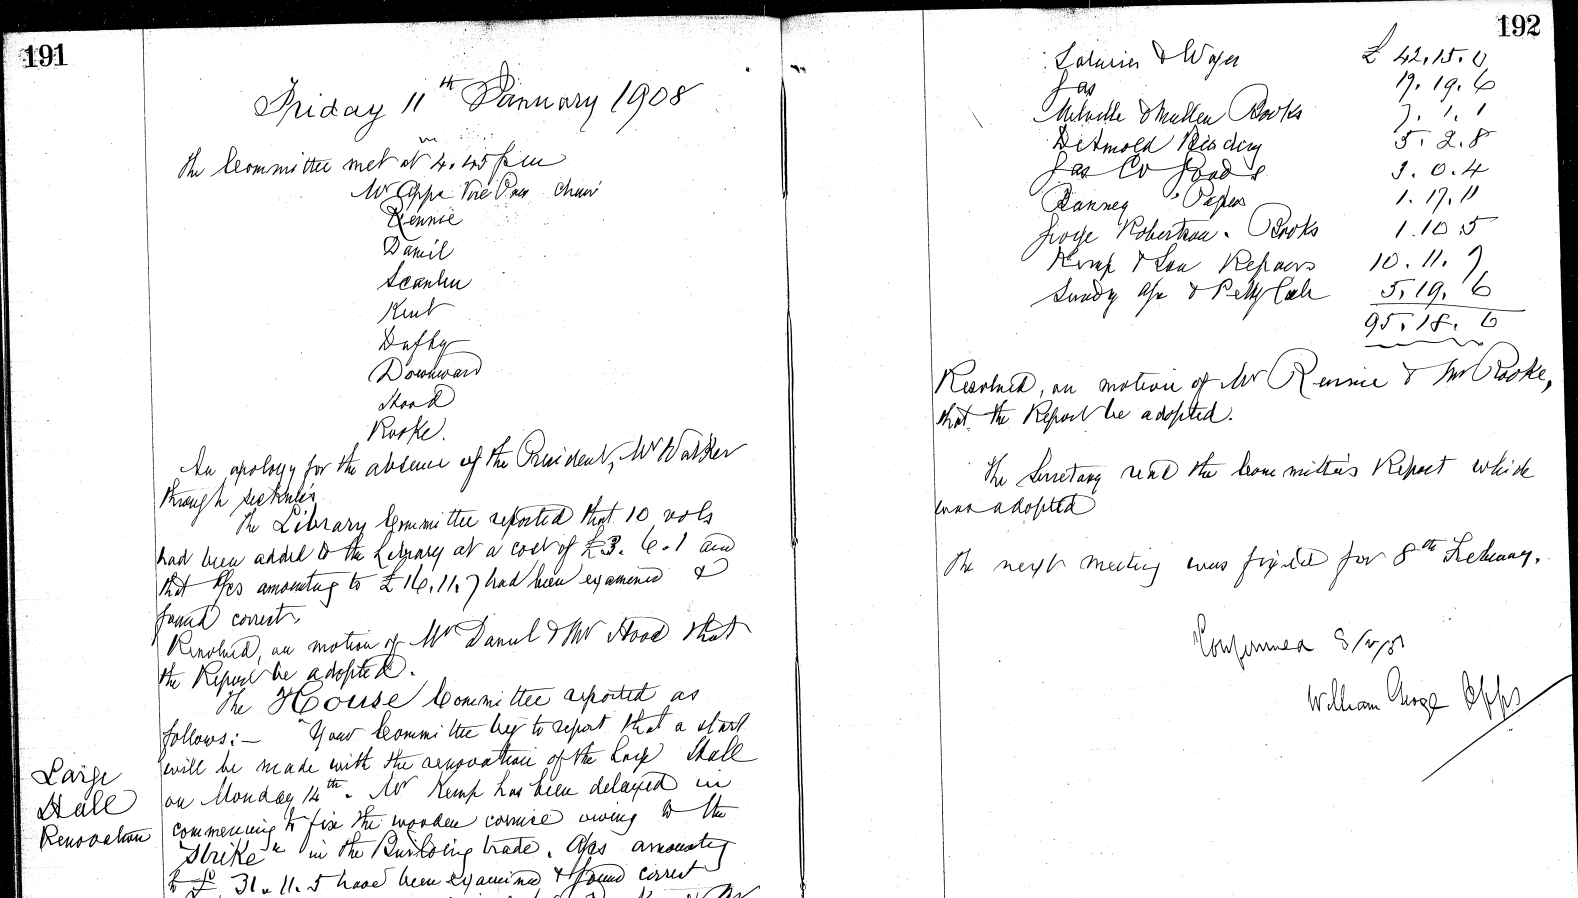 191
Friday 11th January 1908
The Committee met at 4.45 pm
Mr Opps Vice Pres chair
Rennie
Daniel
Scanlan
Kent
Duffy
Downward
Hood
Rooke.
An apology for the absence of the President, Mr Walker
through sickness
The Library Committee reported that 10 vols
had been added to the Library at a cost of £3. 6. 1 and
that a/cs amounting to £16.11.7 had been examined &
found correct.
Resolved, on motion of Mr Daniel & Mr Hood that
the Report be adopted.
The House Committee reported as
follows:— "Your Committee beg to report that a start
will be made with the renovation of the Large Hall
on Monday 14th. Mr Kemp has been delayed in
commencing to fix the wooden cornice owing to the
"Strike" in the Building trade. A/cs amounting
to £ 31.11.5 have been examined & found correct
Large
Hall
Renovation
192
Salaries & Wages £ 42.15.0
Gas 19.19.6
Melville & Mullen Books 7.1.1
Detmold Binding 5.2.8
Gas Co Goods 3.0.4
Papers 1.17.11
George Robertson. Books 1.10.5
Kemp & Son Repairs 10.11.7
Sundry a/cs & Petty Cash 5.19.6
95.18.6
Resolved, on motion of Mr Rennie & Mr Rooke,
that the Report be adopted.
The Secretary read the Committee's Report which
was adopted
The next meeting was fixed for 8th February.
Confirmed
William George Opps